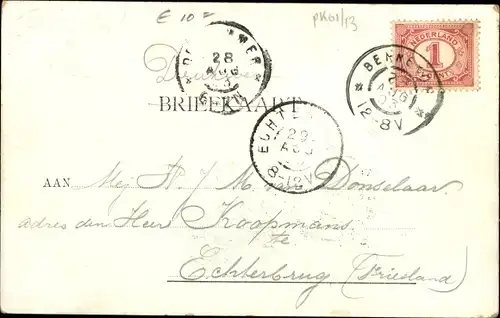 E 10 =
pk01/13
NEDERLAND
1
28
AUG
29
AUG
8-12V
12-8V
BRIEFKAART
AAN Mej A. J. M. van Donselaar
adres den Heer Koopmans
te
Echterbrug, (Friesland)